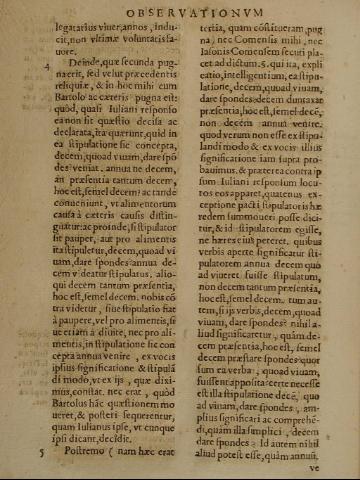 OBSERVATIONVM
legatarius viuer, annos, indu-
cit, non vltimæ voluntatis fa-
uore.
4 Deinde, quæ secunda pug-
na erit, sed velut præcedentis
reliquiæ, & in hoc mihi cum
Bartolo ac cæteris pugna est:
quòd, quasi Iuliani responso
ea non sit quæstio decisa ac
declarata, ita quærunt, quid in
ea stipulatione sic concepta,
decem, quoad viuam, dare spó
des? veniat. annua ne decem,
an præsentia tantum decem,
hoc est, semel decem? ac tande
conueniunt, vt alimentorum
causa à cæteris causis distin-
guatur: ac proinde, si stipulator
sit pauper, aut pro alimentis
ita stipuletur, decem, quoad vi
uam, dare spondes? annua de-
cem videatur stipulatus. alio-
qui decem tantum præsentia,
hoc est, semel decem. nobis cō
tra videtur, siue stipulatio fiat
à paupere, vel pro alimentis, si
ue etiam à diuite, nec pro ali-
mentis, in stipulatione sic con
cepta annua venire, ex vocis
ipsius significatione & stipulā
di modo, vt ex ijs, quæ dixi-
mus, constat. nec erat, quòd
Bartolus hāc quæstionem mo
ueret, & posteri sequerentur,
quam Iulianus ipse, vt cunque
ipsi dicant, decidit.
5 Postremo ( nam hæc erat
tertia, quam cōstitueram, pug
na, nec Comensis mihi, nec
Iasonis Comensem secuti pla-
cet ad dictum. 5. qui ita, expli
catio, intelligentium, ea stipu-
latione, decem, quoad viuam,
dare spondes? decem duntaxat
præsentia, hoc est, semel decē,
non decem annua venire.
quod verum non esse ex stipu-
landi modo & ex vocis illius
significatione iam supra pro
bauimus. & præterea contra ip
sum Iuliani responsum locu-
tos eos apparet, quatenus ex-
ceptione pacti stipulatoris hæ
redem summoueri posse dici-
tur, & id stipulatorem egisse,
ne hæres eius peteret. quibus
verbis aperte significatur sti-
pulatorem annua decem quo
ad viueret fuisse stipulatum,
non decem tantum præsentia,
hoc est, semel decem. tum au-
tem, si ijs verbis, decem, quoad
viuam, dare spondes? nihil a-
liud significaretur, quàm de-
cem præsentia, hoc est, semel
decem præstare spondes? quor
sum ea verba, quoad viuam,
fuissent apposita? certe necesse
est illa stipulatione decē, quo
ad viuam, dare spondes, am-
plius significari ac comprehē-
di, quàm illa simplici, decem
dare spondes? Id autem nihil
aliud potest esse, quàm annua,
ve